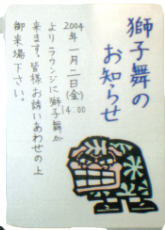 獅子舞の
お知らせ
2004年一月二日(金)
14:00
よりラウンジに獅子舞が
来ます。皆様お誘いあわせの上
御来場下さい。